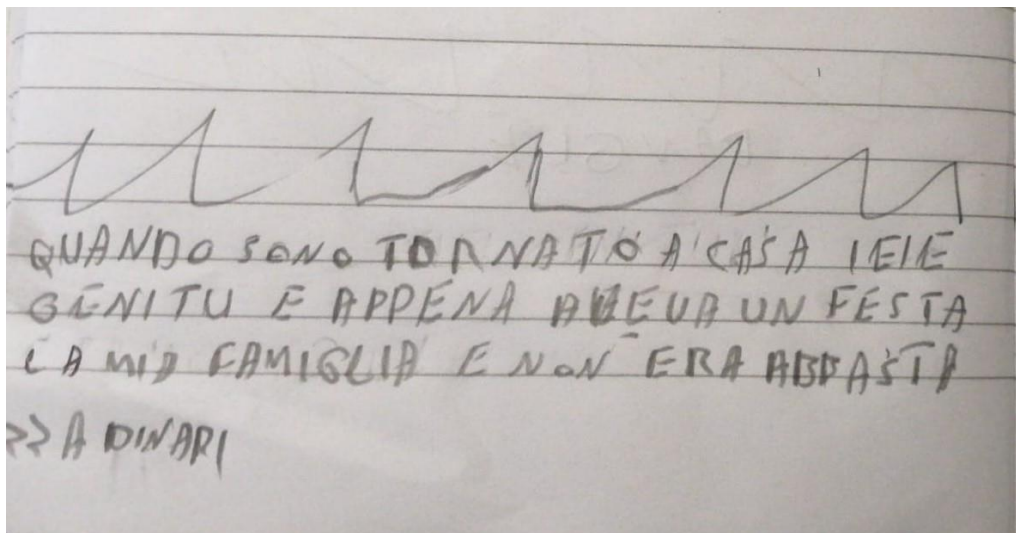 QUANDO SONO TORNATO A CASA IEIE
GENITU E APPENA AVEVA UN FESTA
LA MIA FAMIGLIA E NON ERA ABBASTA
>> A DINARI